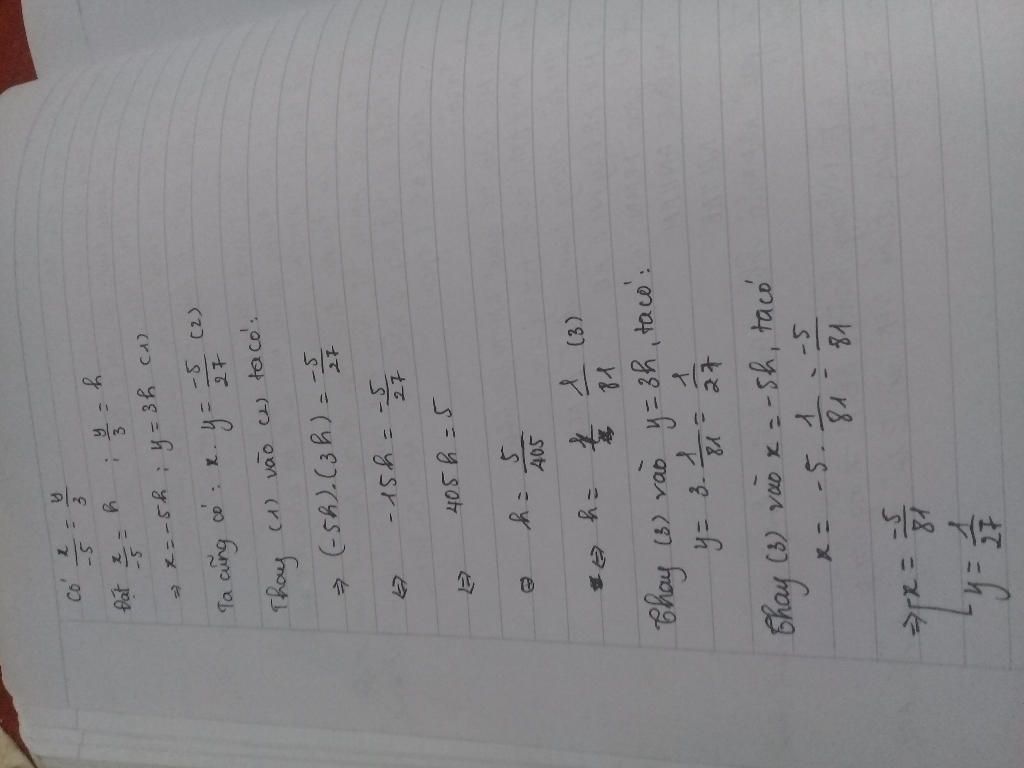 Có x/-5 = y/3
Đặt x/-5 = h ; y/3 = h
⇒ x = -5h ; y = 3h (1)
Ta cũng có : x . y = -5/27 (2)
Thay (1) vào (2) ta có :
⇒ (-5h).(3h) = -5/27
⇔ -15h = -5/27
⇔ 405h = 5
⇔ h = 5/405
⇔ h = 1/81 (3)
Thay (3) vào y = 3h, ta có :
y = 3 . 1/81 = 1/27
Thay (3) vào x = -5h, ta có
x = -5 . 1/81 = -5/81
⇒ [ x = -5/81
y = 1/27